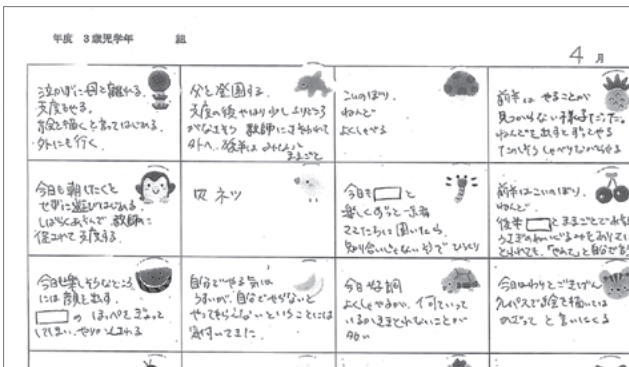 年度 3歳児学年 組
4月
泣かずに母と離れる。
支度もやる。
お絵を描くと言ってはじめる。
外にも行く。
父と登園する。
支度の後やはり少しよりどころ
がなさそう 教師にさそわれて
外へ。後半は
ままごと
こいのぼり。
ねんど
よくしゃべる
前半は やることが
見つからない様子だった。
ねんどを出すとずっとやる
たのしそう しゃべりながらやる
今日も朝したくと
せずに遊びはじめる。
しばらくあそんで 教師に
促されて支度する。
欠 ネツ
今日も と
楽しくずっと一緒
ママたちに聞いたら、
知り合いじゃないそうで びっくり
前半はこいのぼり。
ねんど。
後半 とままごとで
うさぎのぬいぐるみを
とられても、「やめて」と自分で
今日も楽しそうなところ
には顔を出す。
の ほっぺをさわって
してしまい、やりかえされる
自分でやる気は
うすいが、自分でやらないと
やってもらえないということには
気付いてきた。
今日好調
よくしゃべるが、何ていって
いるかききとれないことが
多い
今日はわりとごきげん
クレパスでお絵を描いては
と言いにくる